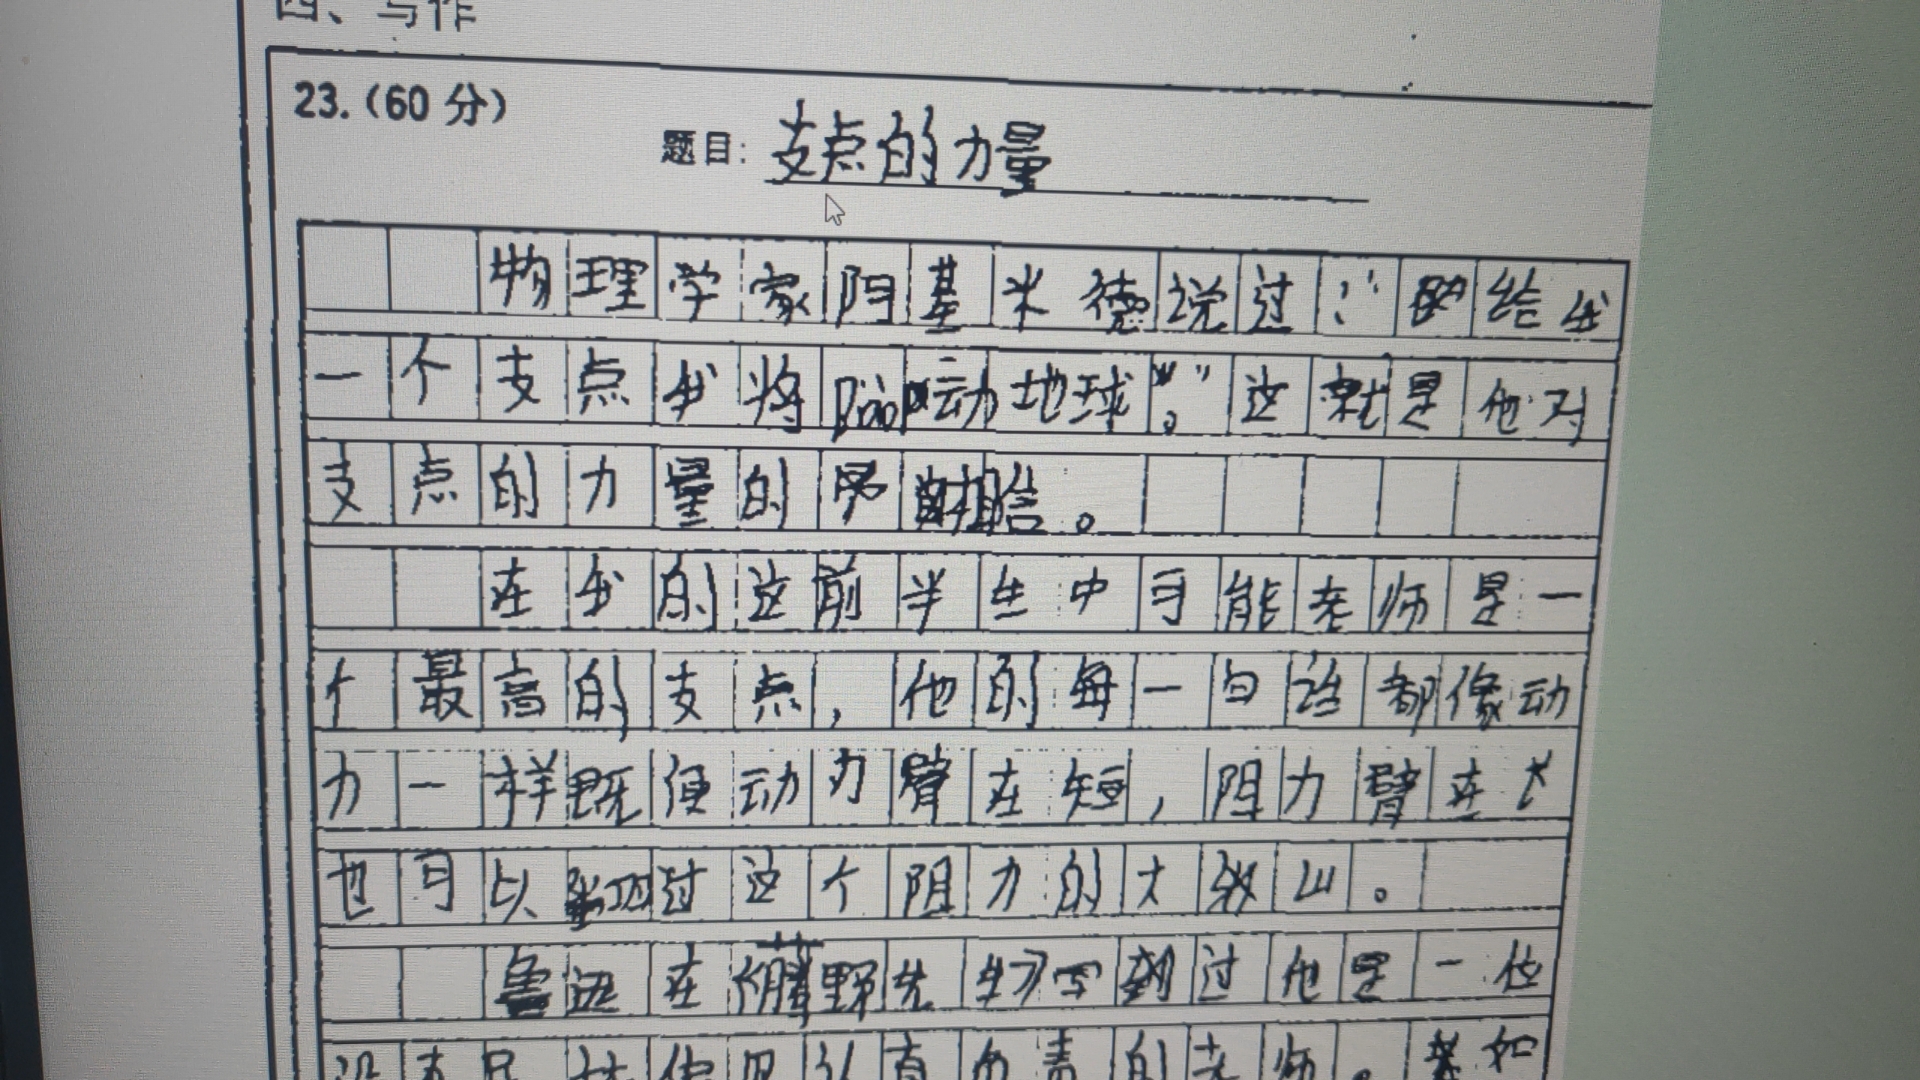 四、写作
23.（60 分）
题目：支点的力量
物理学家阿基米德说过：“给我
一个支点我将动地球”。这就是他对
支点的力量的。
在我的这前半生中可能老师是一
个最高的支点，他的每一句话都像动
力一样既使动力臂在短，阻力臂在大
也可以过这个阻力的大山。
鲁迅在藤野先生写到过他是一位
没有民族但认真负责的老师。